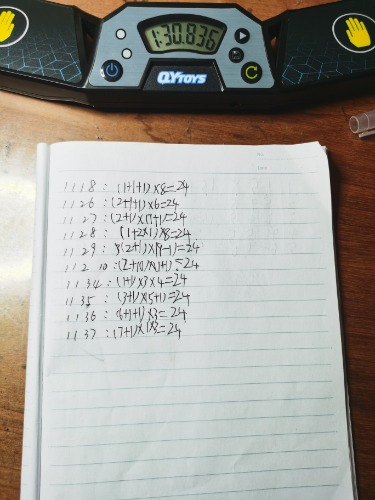 1:30.836
QYTOYS
1 1 1 8 : (1+1+1)×8=24
1 1 2 6 : (2+1+1)×6=24
1 1 2 7 : (2+1)×(7+1)=24
1 1 2 8 : (1+2×1)×8=24
1 1 2 9 : (2+1)×(9-1)=24
1 1 2 10 : (2+10)×(1+1)=24
1 1 3 4 : (1+1)×3×4=24
1 1 3 5 : (3+1)×(5+1)=24
1 1 3 6 : (6+1+1)×3=24
1 1 3 7 : (7+1)×1×3=24